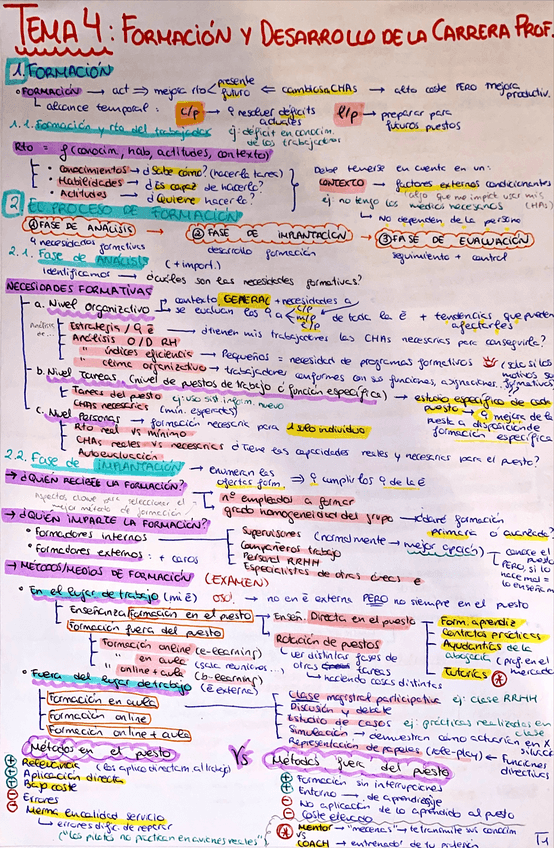 TEMA 4: FORMACIÓN Y DESARROLLO DE LA CARRERA PROF.
1. FORMACIÓN
• FORMACIÓN → act ⇒ mejora rto < presente futuro ⇐ cambios a CHAs → alto coste PERO mejora productiv.
↳ alcance temporal: c/p → resolver déficits actuales l/p → preparar para futuros puestos
1.1. Formación y rto del trabajador ej: déficit en conocim. de los trabajadores
Rto = f(conocim, hab, actitudes, contexto)
• Conocimientos → ¿Sabe cómo? (hacer la tarea)
• Habilidades → ¿Es capaz de hacerlo?
• Actitudes → ¿Quiere hacerlo?
Debe tenerse en cuenta en un:
CONTEXTO → factores externos condicionantes
ej no tengo los medios necesarios
↳ No dependen de la persona
2. EL PROCESO DE FORMACIÓN
① FASE DE ANÁLISIS → ② FASE DE IMPLANTACIÓN → ③ FASE DE EVALUACIÓN
necesidades formativas desarrollo formación seguimiento + control
2.1. Fase de ANÁLISIS (+ import.)
identificamos → ¿cuáles son las necesidades formativas?
NECESIDADES FORMATIVAS
a. Nivel organizativo contexto GENERAL + necesidades a c/p m/p l/p de toda la é + tendencias que pueden afectarles
se evalúan los
Análisis de...
Estrategia / é → ¿tienen mis trabajadores las CHAs necesarias para conseguirla?
Análisis O/D RH
" índices eficiencia → Pequeños = necesidad de programas formativos (solo si los motivos son formativos)
" clima organizativo → trabajadores conformes con sus funciones, asignaciones...
b. Nivel Tareas (nivel de puestos de trabajo o función específica) → estudio específico de cada puesto → mejora de la
Tareas del puesto ej: uso sist. inform. nuevo puesta a disposición de formación específica
CHAs necesarias (mín. esperadas)
c. Nivel Personas → formación necesaria para 1 solo individuo
Rto real vs mínimo
CHAs reales vs necesarias ¿Tiene las capacidades reales y necesarias para el puesto?
Autoevaluación
2.2. Fase de IMPLANTACIÓN → enumeran las ofertas form. ⇒ cumplir los de la é
→ ¿QUIÉN RECIBE LA FORMACIÓN?
Aspectos clave para seleccionar el mejor método de formación
nº empleados a formar
grado homogeneidad del grupo → ¿daré formación primaria o avanzada?
→ ¿QUIÉN IMPARTE LA FORMACIÓN?
• Formadores internos
• Formadores externos: + caros
Supervisores (normalmente → mejor opción) conoce el puesto PERO, si lo hace mal = lo enseña mal
Compañeros trabajo
Personal RRHH
Especialistas de otras áreas é
→ MÉTODOS/MEDIOS DE FORMACIÓN (EXAMEN)
• En el lugar de trabajo (mi é) OSO! → no en é externa PERO no siempre en el puesto
Enseñanza/Formación en el puesto
Formación fuera del puesto
Enseñ. Directa en el puesto
Rotación de puestos
↳ ver distintas fases de otras tareas
↳ haciendo cosas distintas
Form. aprendiz
Contratos prácticas
Ayudantías de la abogacía (prof. en el mercado)
Tutorías *
Formación online (e-learning)
" en aula
" online + aula (b-learning)
(sala reuniones...)
• Fuera del lugar de trabajo (é externa)
Formación en aula
Formación online
Formación online + aula
Clase magistral participativa ej: clase RRHH
Discusión y debate
Estudio de casos ej: prácticas realizadas en clase
Simulación → demuestran cómo actuarían en X situación
Representación de papeles (role-play) ← Funciones directivas
Métodos en el puesto VS Métodos fuera del puesto
+ Relevancia (los aplica directam. al trabajo)
+ Aplicación directa
+ Bajo coste
− Errores
− Merma en calidad servicio
↳ errores difíc. de reparar
("los pilotos no practican en aviones reales")
+ Formación sin interrupciones
+ Entorno → de aprendizaje
− No aplicación de lo aprendido al puesto
− Coste elevado
* Mentor → "mecenas" → te transmite sus conocim
VS
COACH → entrenador de tu potencia
T4